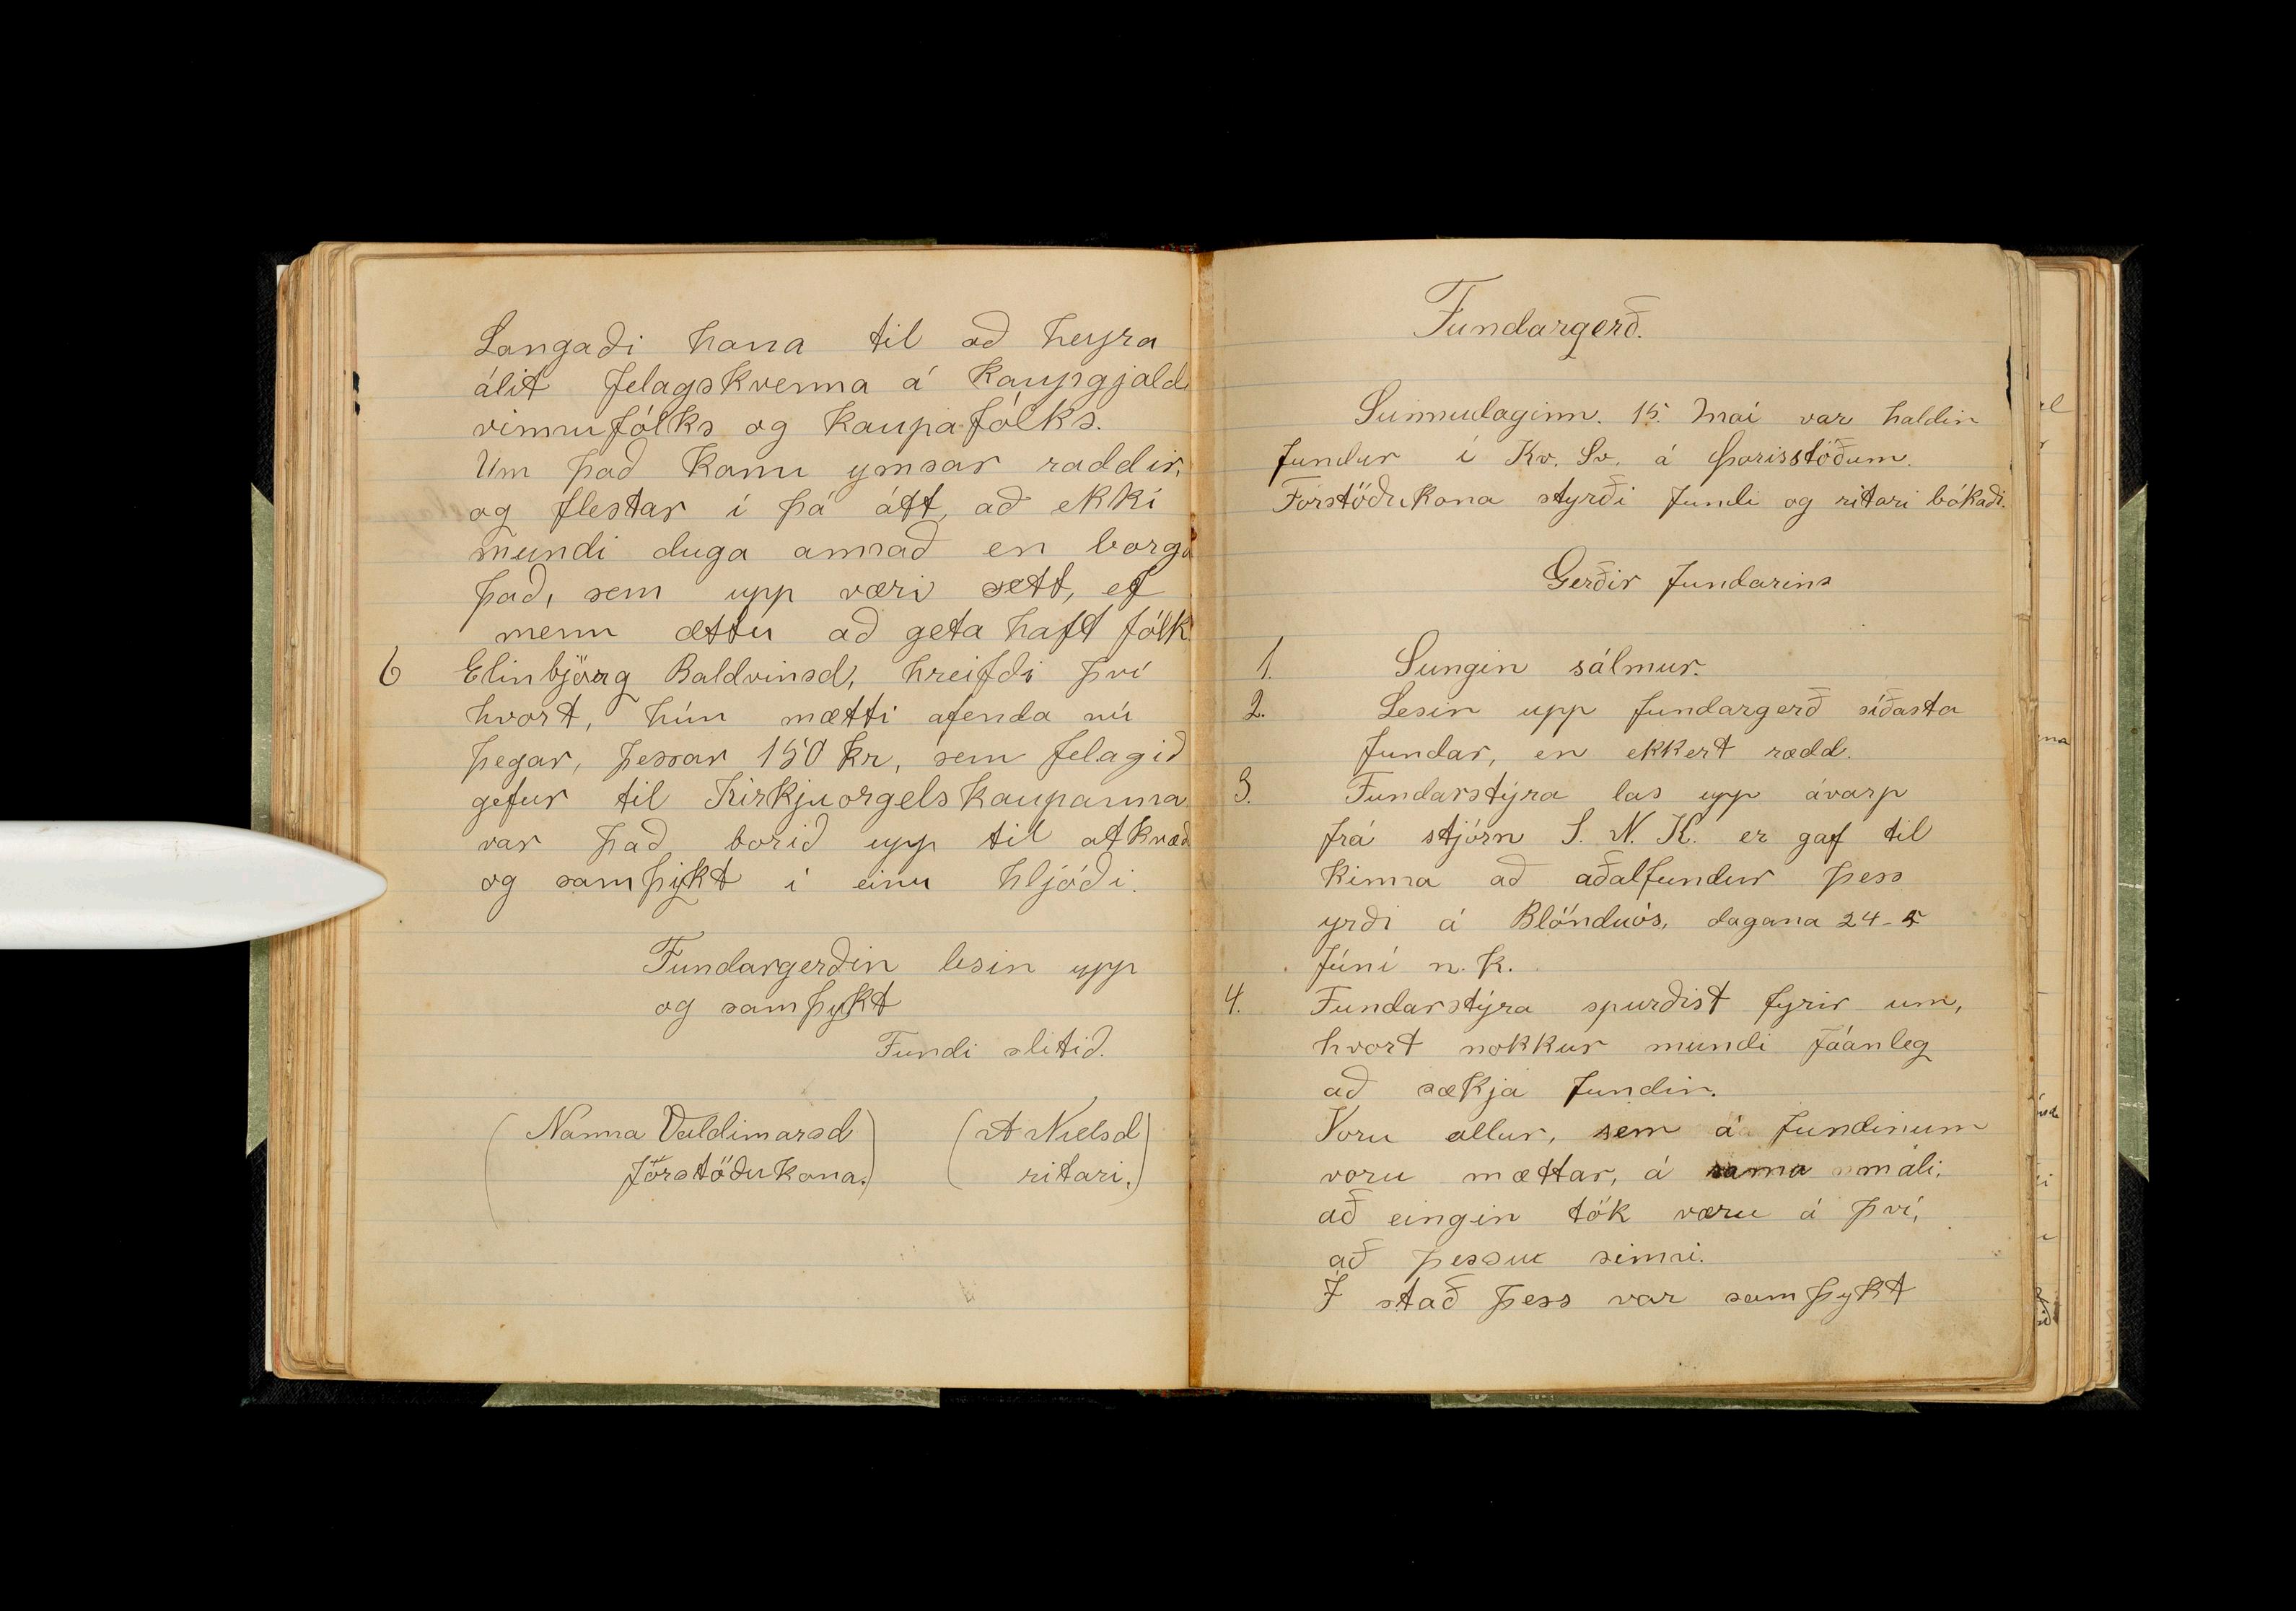 Langaði hana til að heyra
álit felagskvenna á kaupgjaldi
vinnufólks og kaupafólks.
Um það komu ymsar raddir,
og flestar í þá átt, að ekki
mundi duga annað en borga
það, sem upp væri sett, ef
menn ættu að geta haft fólk
6 Elinbjörg Baldvinsd, hreifdi því
hvort, hún mætti afenda nú
þegar, þessar 150 kr, sem felagið
gefur til Kirkjuorgelskaupanna
var það borið upp til atkvæð
og samþykt í einu hljóði.
Fundargerðin lesin upp
og samþykt
Fundi slitið.
(Nanna Valdimarsd) (A Nielsd)
förstöðukona.) (ritari.)
Fundargerð.
Sunnudaginn. 15. Maí var haldin
fundur í Kv. Sv. á Þorisstöðum.
Forstöðukona styrði fundi og ritari bókaði.
Gerðir fundarins
1. Sungin sálmur.
2. Lesin upp fundargerð síðasta
fundar, en ekkert rædd.
3. Fundarstýra las upp ávarp
frá stjórn S. N. K. er gaf til
kinna að aðalfundur þess
yrði á Blönduós, dagana 24-5
Júní n. k.
4. Fundarstýra spurðist fyrir um,
hvort nokkur mundi fáanleg
að sækja fundin.
Voru allur, sem á fundinum
voru mættar, á sama máli,
að eingin tök væru á því,
að þessu sinni.
Í stað þess var samþykt